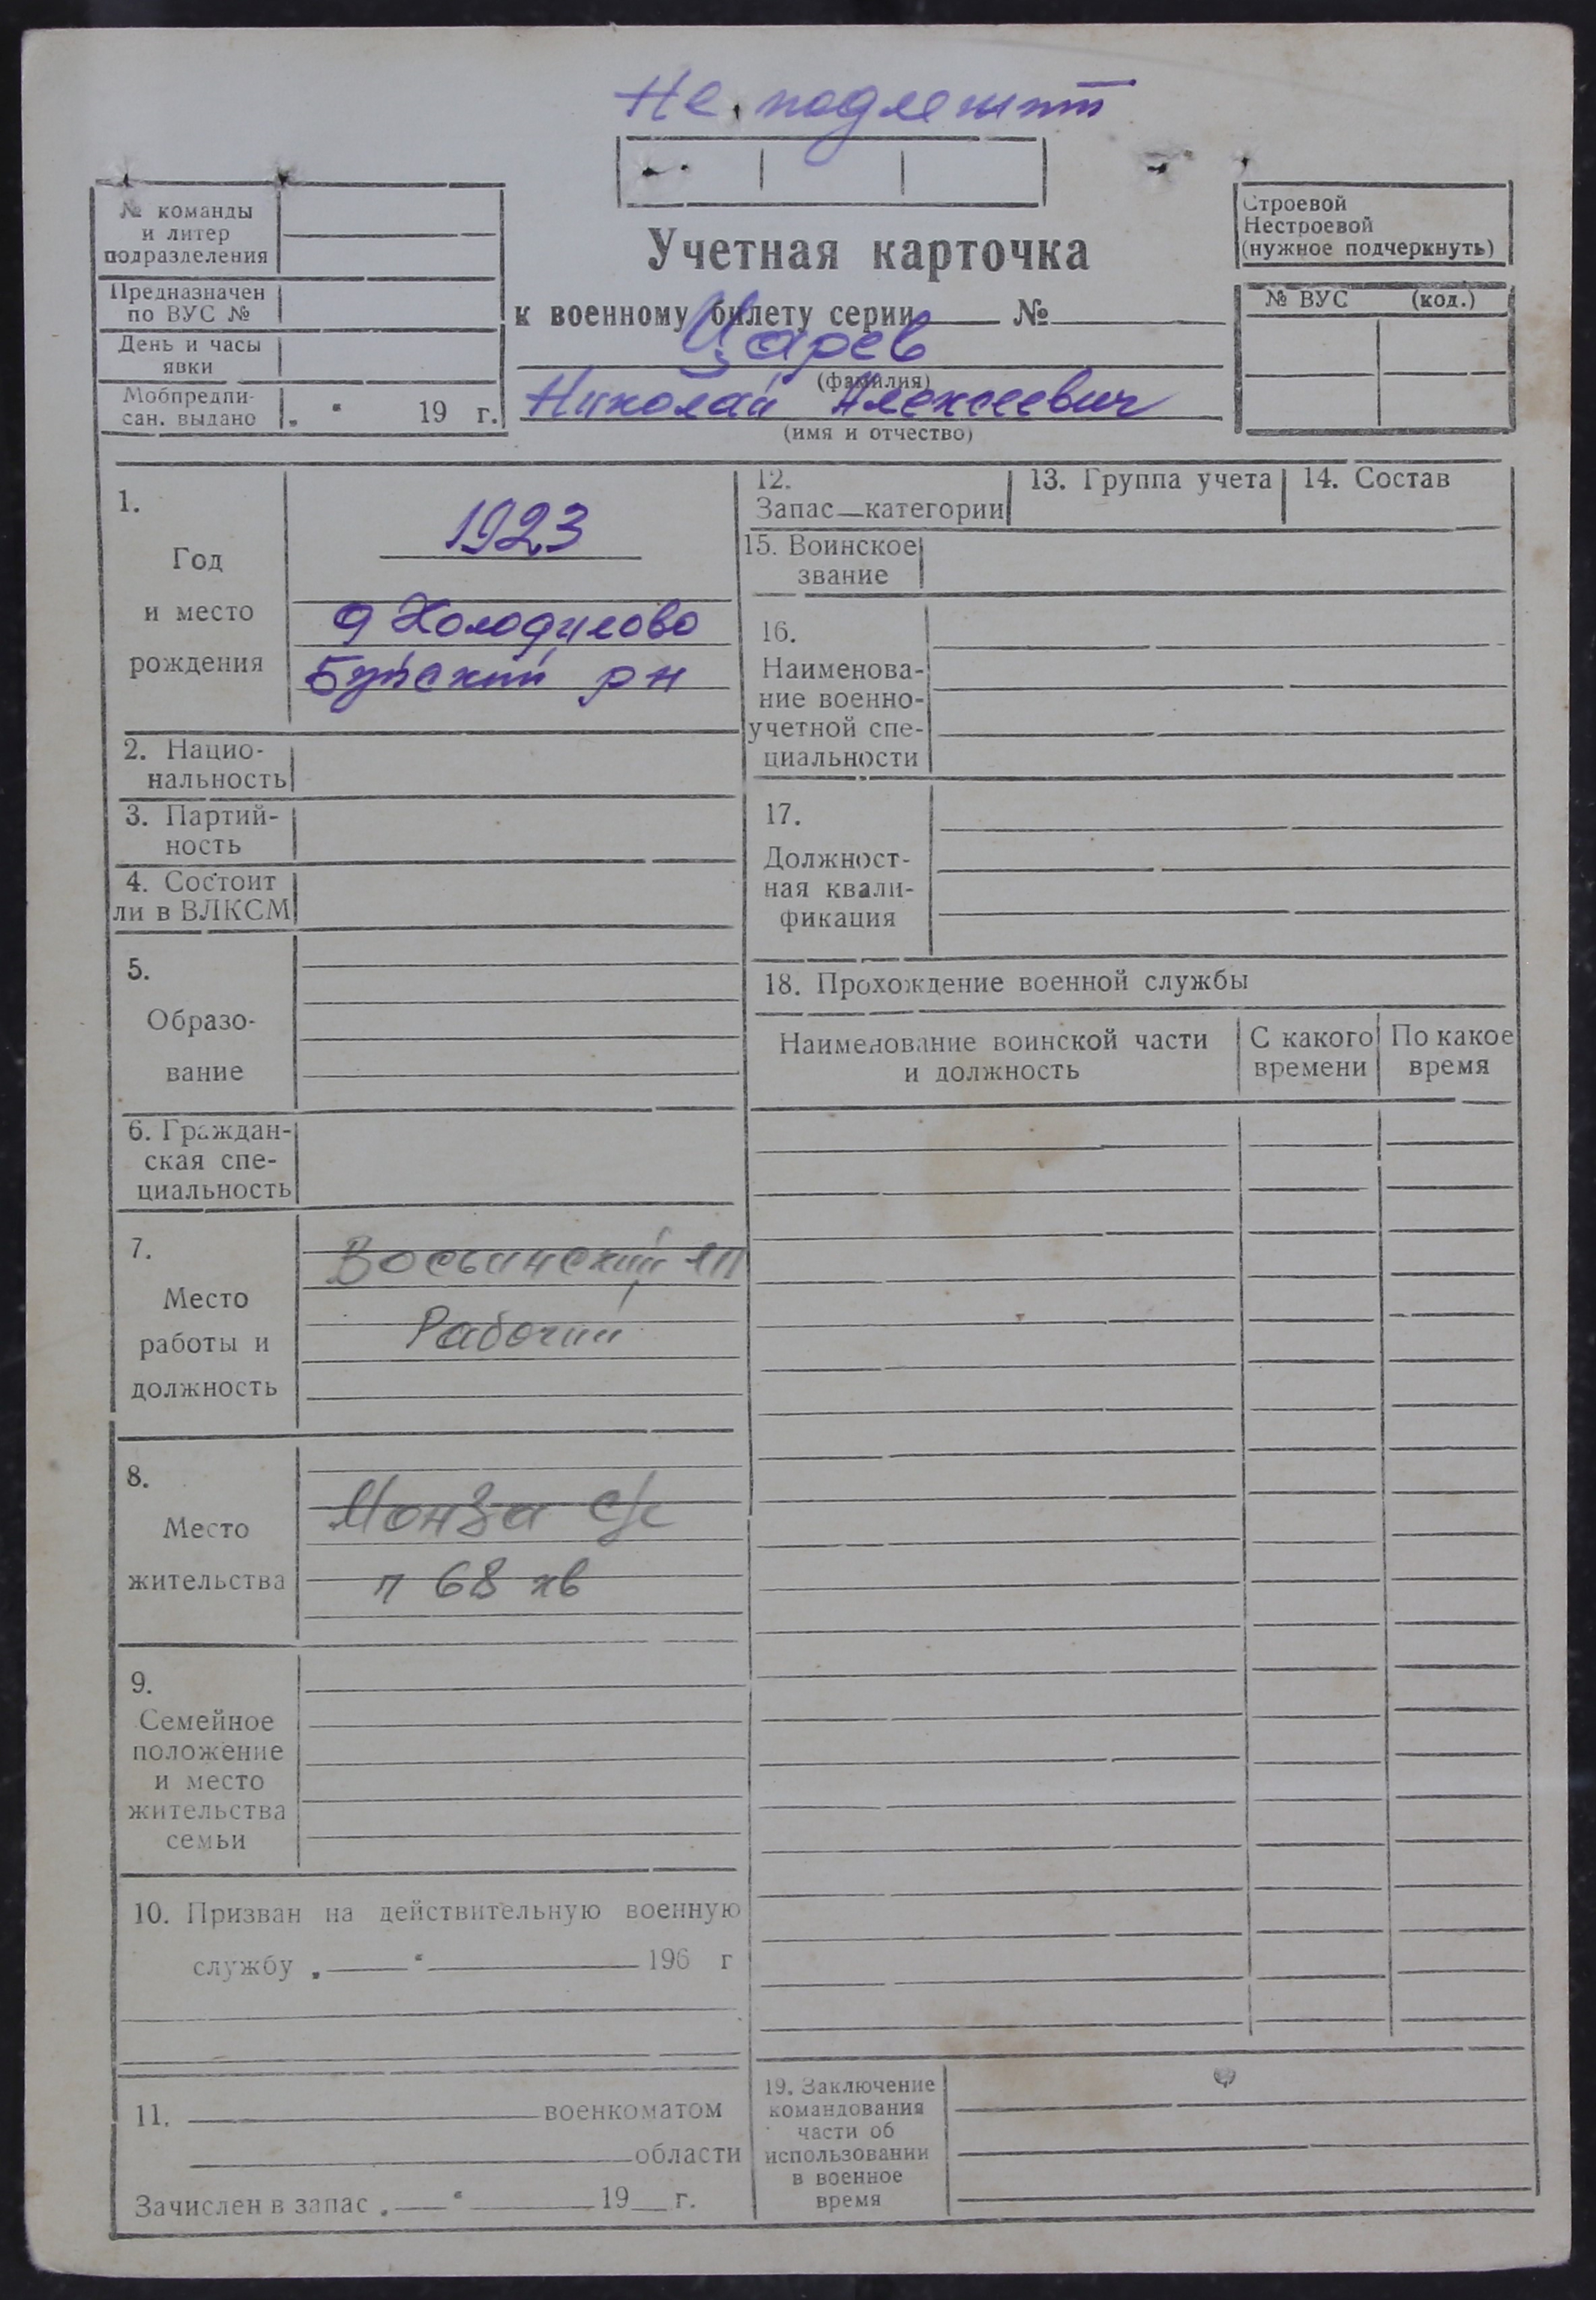 Не подлежит
№ команды
и литер
подразделения
Предназначен
по ВУС №
День и часы
явки
Мобпредпи-
сан. выдано „ “ 19 г.
Учетная карточка
к военному билету серии № 
Царев
(фамилия)
Николай Алексеевич
(имя и отчество)
Строевой
Нестроевой
(нужное подчеркнуть)
№ ВУС (код.)
1.
Год
и место
рождения
1923
д Холодилово
Буйский рн
2. Нацио-
нальность
3. Партий-
ность
4. Состоит
ли в ВЛКСМ
5.
Образо-
вание
6. Граждан-
ская спе-
циальность
7.
Место
работы и
должность
ЛП
Рабочий
8.
Место
жительства
Монза с/с
п 68 кв
9.
Семейное
положение
и место
жительства
семьи
10. Призван на действительную военную
службу „ “ 196 г
11. военкоматом
области
Зачислен в запас „ “ 19 г.
12.
Запас—категории
13. Группа учета
14. Состав
15. Воинское
звание
16.
Наименова-
ние военно-
учетной спе-
циальности
17.
Должност-
ная квали-
фикация
18. Прохождение военной службы
Наименование воинской части
и должность
С какого
времени
По какое
время
19. Заключение
командования
части об
использовании
в военное
время